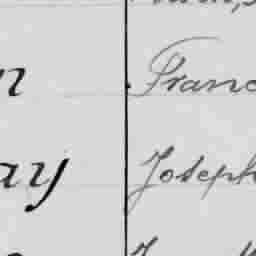 n Franc
ay Joseph